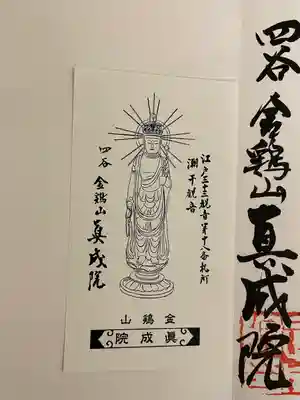 四谷 金鶏山 真成院
江戸三十三観音第十八番札所
潮干観音
四谷 金鶏山 真成院
金鶏山
眞成院